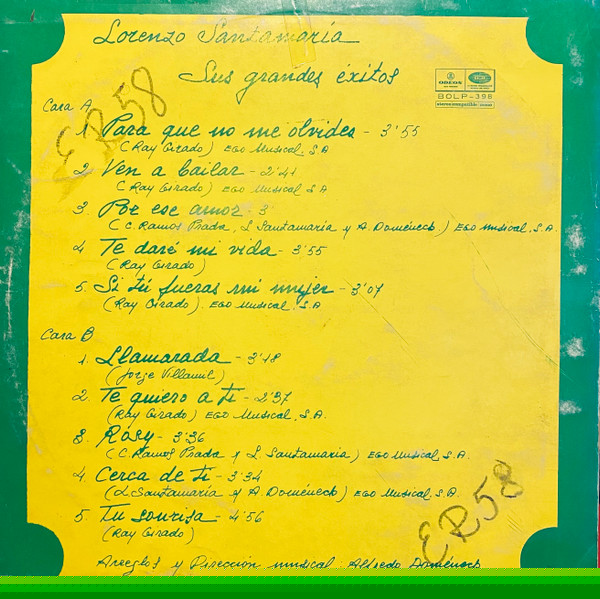 Lorenzo Santamaría
Sus grandes éxitos
ODEON
BOLP-398
Cara A
ER58
1. Para que no me olvides - 3'55
(Ray Girado) EGO Musical, S.A
2. Ven a bailar - 2'41
(Ray Girado) EGO Musical S.A
3. Por ese amor - 3'
(C. Ramos Prada, L. Santamaría y A. Doménech) EGO Musical, S.A.
4 Te daré mi vida - 3'55
(Ray Girado)
5. Si tú fueras mi mujer - 3'07
(Ray Girado). EGO Musical, S.A
Cara B
1. Llamarada - 3'18
(Jorge Villamil)
2. Te quiero a ti - 2'37
(Ray Girado) EGO Musical, S.A.
3. Rosy - 3'36
(C. Ramos Prada y L. Santamaría) EGO Musical, S.A.
4. Cerca de ti - 3'34
(L. Santamaría y A. Doménech) EGO Musical, S.A.
5. Tu sonrisa - 4'56
(Ray Girado)
ER58
Arreglos y Dirección musical: Alfredo Doménech